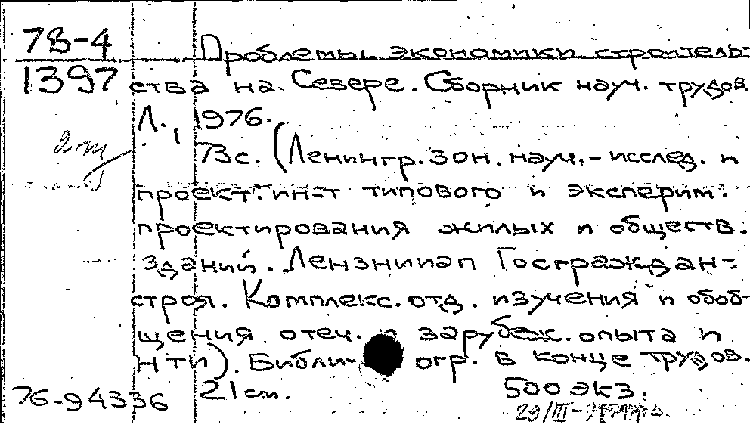 78-4
1397
Проблемы экономики строитель-
ства на Севере. Сборник науч. трудов.
Л., 1976.
73с. (Ленингр. зон. науч.-исслед. и
проект. инст типового и эксперим.
проектирования жилых и обществ.
зданий. Лензнииэп Госграждан-
строя. Комплекс. отд. изучения и обоб-
щения отеч. и зарубеж. опыта и
НТИ). Библиогр. в конце трудов.
76-94336 21см. 500 экз.